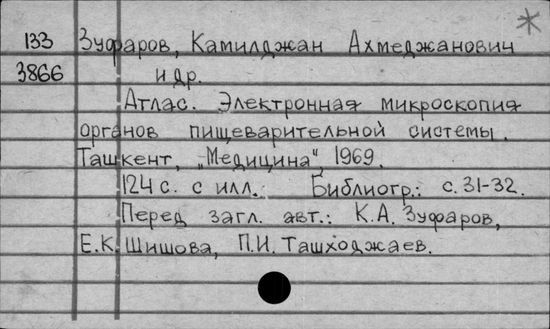 133 Зуфаров, Камилджан Ахмеджанович
3866 и др.
Атлас. Электронная микроскопия
органов пищеварительной системы.
Ташкент, „Медицина" 1969.
124 с. с илл. Библиогр.: с. 31-32.
Перед загл. авт.: К.А. Зуфаров,
Е.К. Шишова, П.И. Ташходжаев.